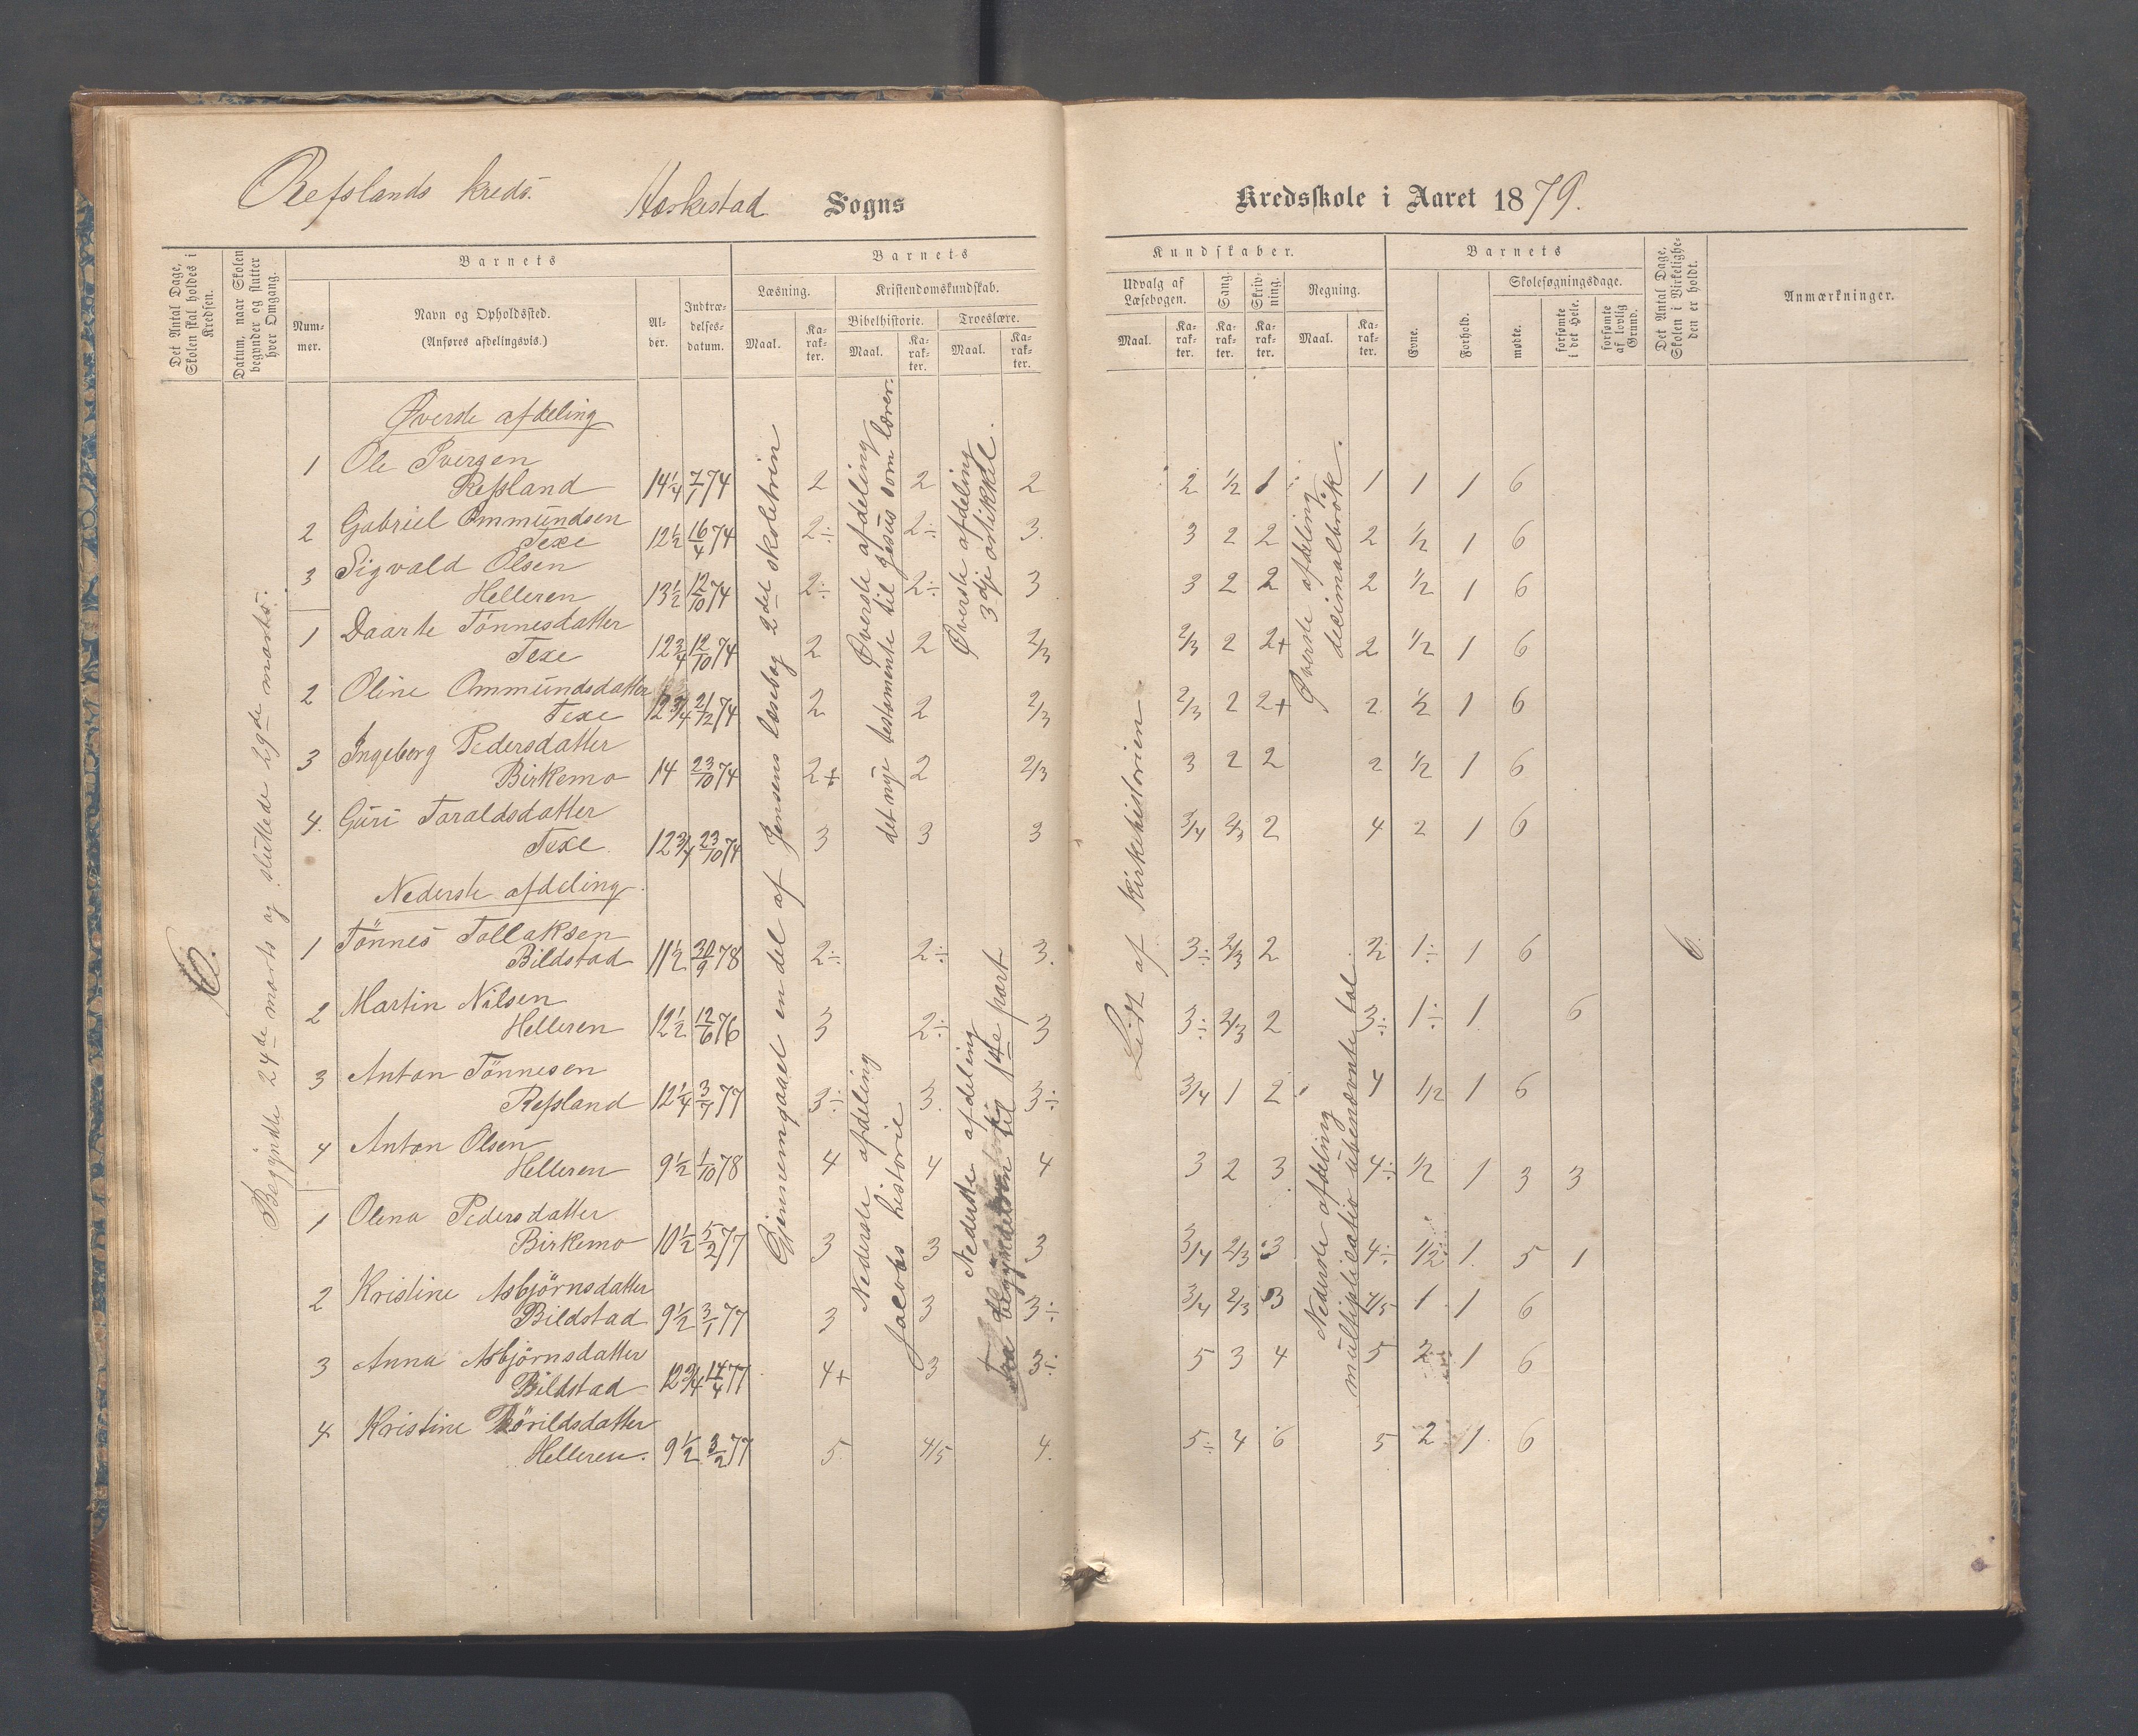 Refslands kreds. Heskestad Sogns
Kredsskole i Aaret 1879.
Det Antal Dage, Skolen skal holdes i Kredsen.
Datum, naar Skolen begynder og slutter hver Omgang.
Barnets
Nummer.
Navn og Opholdssted.
(Anføres afdelingsvis.)
Alder.
Indtrædelsesdatum.
Barnets
Læsning.
Maal.
Karakter.
Kristendomskundskab.
Bibelhistorie.
Maal.
Karakter.
Troeslære.
Maal.
Karakter.
Kundskaber.
Udvalg af Læsebogen.
Maal.
Karakter.
Sang.
Karakter.
Skrivning.
Karakter.
Regning.
Maal.
Karakter.
Barnets
Evne.
Forhold.
Skolesøgningsdage.
mødte.
forsømte i det Hele.
forsømte af lovlig Grund.
Det Antal Dage, Skolen i Virkeligheden er holdt.
Anmærkninger.
6.
Begyndte 24de marts og sluttede 29de marts.
Gjennemgaaet en del af Jensens læsebog 2det skoletrin
Øverste afdeling
det nye testamente til Jesus som lærer.
Øverste afdeling
3dje artikkel.
Nederste afdeling
Jacobs historie
Nederste afdeling
Fra begyndelsen til 1te part
Lidt af Kirkehistorien
Øverste afdeling
decimalbrøk.
Nederste afdeling
multiplicatio ubenævnte tal
6.
Øverste afdeling
1 Ole Iversen
Refsland 14 1/4 7/1 74 2 2 2 2 1/2 1 1 1 1 6
2 Gabriel Ommundsen
Texe 12 1/2 16/4 74 2÷ 2÷ 3. 3 2 2 2 1/2 1 6
3 Sigvald Olsen
Helleren 13 1/2 12/10 74 2÷ 2÷ 3 3 2 2 2 1/2 1 6
1 Daarte Tönnesdatter
Texe 12 3/4 12/10 74 2 2 2/3 2/3 2 2+ 2 1/2 1 6
2 Oline Ommundsdatter
Texe 12 3/4 21/12 74 2 2 2/3 2/3 2 2+ 2 1/2 1 6
3 Ingeborg Pedersdatter
Birkemo 14 23/10 74 2+ 2 2/3 3 2 2 2 1/2 1 6
4. Guri Taraldsdatter
Texe. 12 3/4 23/10 74 3 3 3 3/4 2/3 2 4 2 1 6
Nederste afdeling.
1 Tönnes Tollaksen
Bildstad 11 1/2 20/9 78 2÷ 2÷ 3. 3÷ 2/3 2 2 1÷ 1 6
2 Martin Nilsen
Helleren 12 1/2 12/6 76 3 2÷ 3 3÷ 2/3 2 3÷ 1÷ 1. 6
3 Anton Tönnesen
Refsland 12 1/4 3/7 77 3÷ 3. 3÷ 3/4 1 2 4 1/2 1 6
4 Anton Olsen
Helleren 9 1/2 1/10 78 4 4 4 3 2 3. 4÷ 1/2 1 3 3
1 Olena Pedersdatter
Birkemo 10 1/2 5/2 77 3 3 3 3/4 2/3 3 4÷ 1/2 1. 5 1
2 Kristine Asbjörnsdatter
Bildstad 9 1/2 3/1 77 3 3 3÷ 3/4 2/3 3 4/5 1 1 6
3 Anna Asbjörnsdatter
Bildstad 12 3/4 14/4 77 4+ 3 3÷ 5 3 4 5 2÷ 1 6
4 Kristine Thörildsdatter
Helleren. 9 1/2 3/2 77 5. 4/5 4. 5÷ 4 6 5 2 1. 6